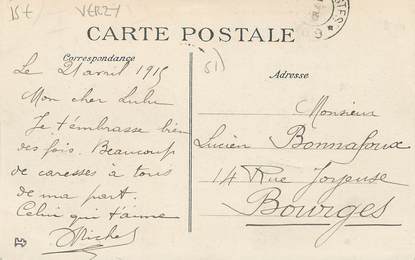 15f VERZY
CARTE POSTALE
Correspondance
51)
Adresse
Le 21 avril 1915
Mon cher Lulu
Je t'embrasse bien
des fois. Beaucoup
de caresses à tous
de ma part.
Celui qui t'aime
Michel
Monsieur
Lucien Bonnafoux
14 Rue Joyeuse
Bourges